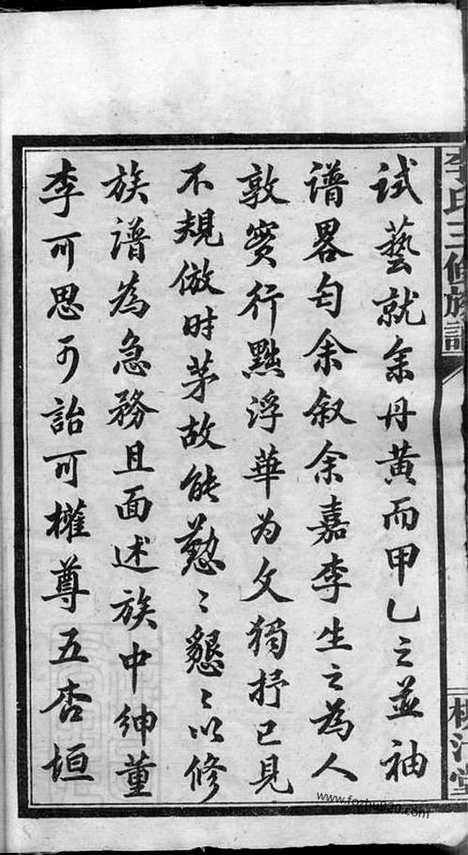 試藝就余丹黃而甲乙之並袖
譜畧匄余叙余嘉李生之為人
敦實行黜浮華为文獨抒已見
不規倣时茅故能懃〻懇〻以修
族譜為急務且面述族中紳董
李可思可詒可權尊五杏垣
李氏三修族譜
www.fozhu920.com